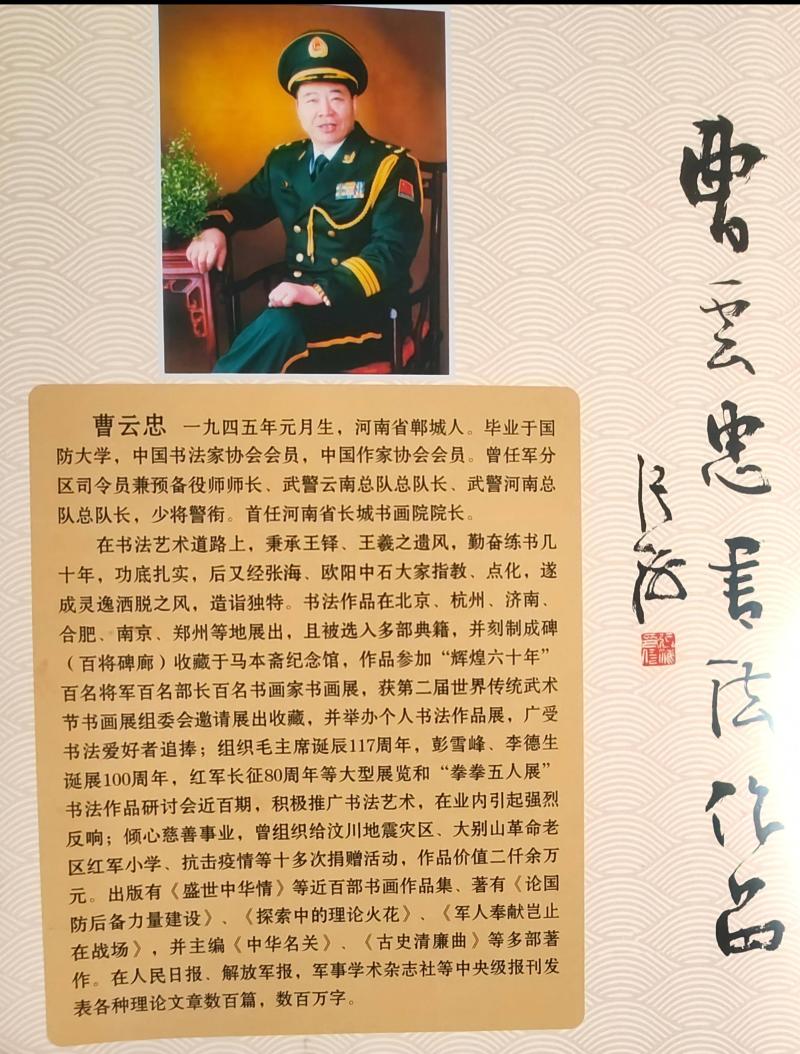 曹雲忠書法作品
张海
曹云忠 一九四五年元月生，河南省郸城人。毕业于国
防大学，中国书法家协会会员，中国作家协会会员。曾任军分
区司令员兼预备役师师长、武警云南总队总队长、武警河南总
队总队长，少将警衔。首任河南省长城书画院院长。
在书法艺术道路上，秉承王铎、王羲之遗风，勤奋练书几
十年，功底扎实，后又经张海、欧阳中石大家指教、点化，遂
成灵逸洒脱之风，造诣独特。书法作品在北京、杭州、济南、
合肥、南京、郑州等地展出，且被选入多部典籍，并刻制成碑
（百将碑廊）收藏于马本斋纪念馆，作品参加“辉煌六十年”
百名将军百名部长百名书画家书画展，获第二届世界传统武术
节书画展组委会邀请展出收藏，并举办个人书法作品展，广受
书法爱好者追捧；组织毛主席诞辰117周年，彭雪峰、李德生
诞展100周年，红军长征80周年等大型展览和“拳拳五人展”
书法作品研讨会近百期，积极推广书法艺术，在业内引起强烈
反响；倾心慈善事业，曾组织给汶川地震灾区、大别山革命老
区红军小学、抗击疫情等十多次捐赠活动，作品价值二仟余万
元。出版有《盛世中华情》等近百部书画作品集、著有《论国
防后备力量建设》、《探索中的理论火花》、《军人奉献岂止
在战场》，并主编《中华名关》、《古史清廉曲》等多部著
作。在人民日报、解放军报，军事学术杂志社等中央级报刊发
表各种理论文章数百篇，数百万字。